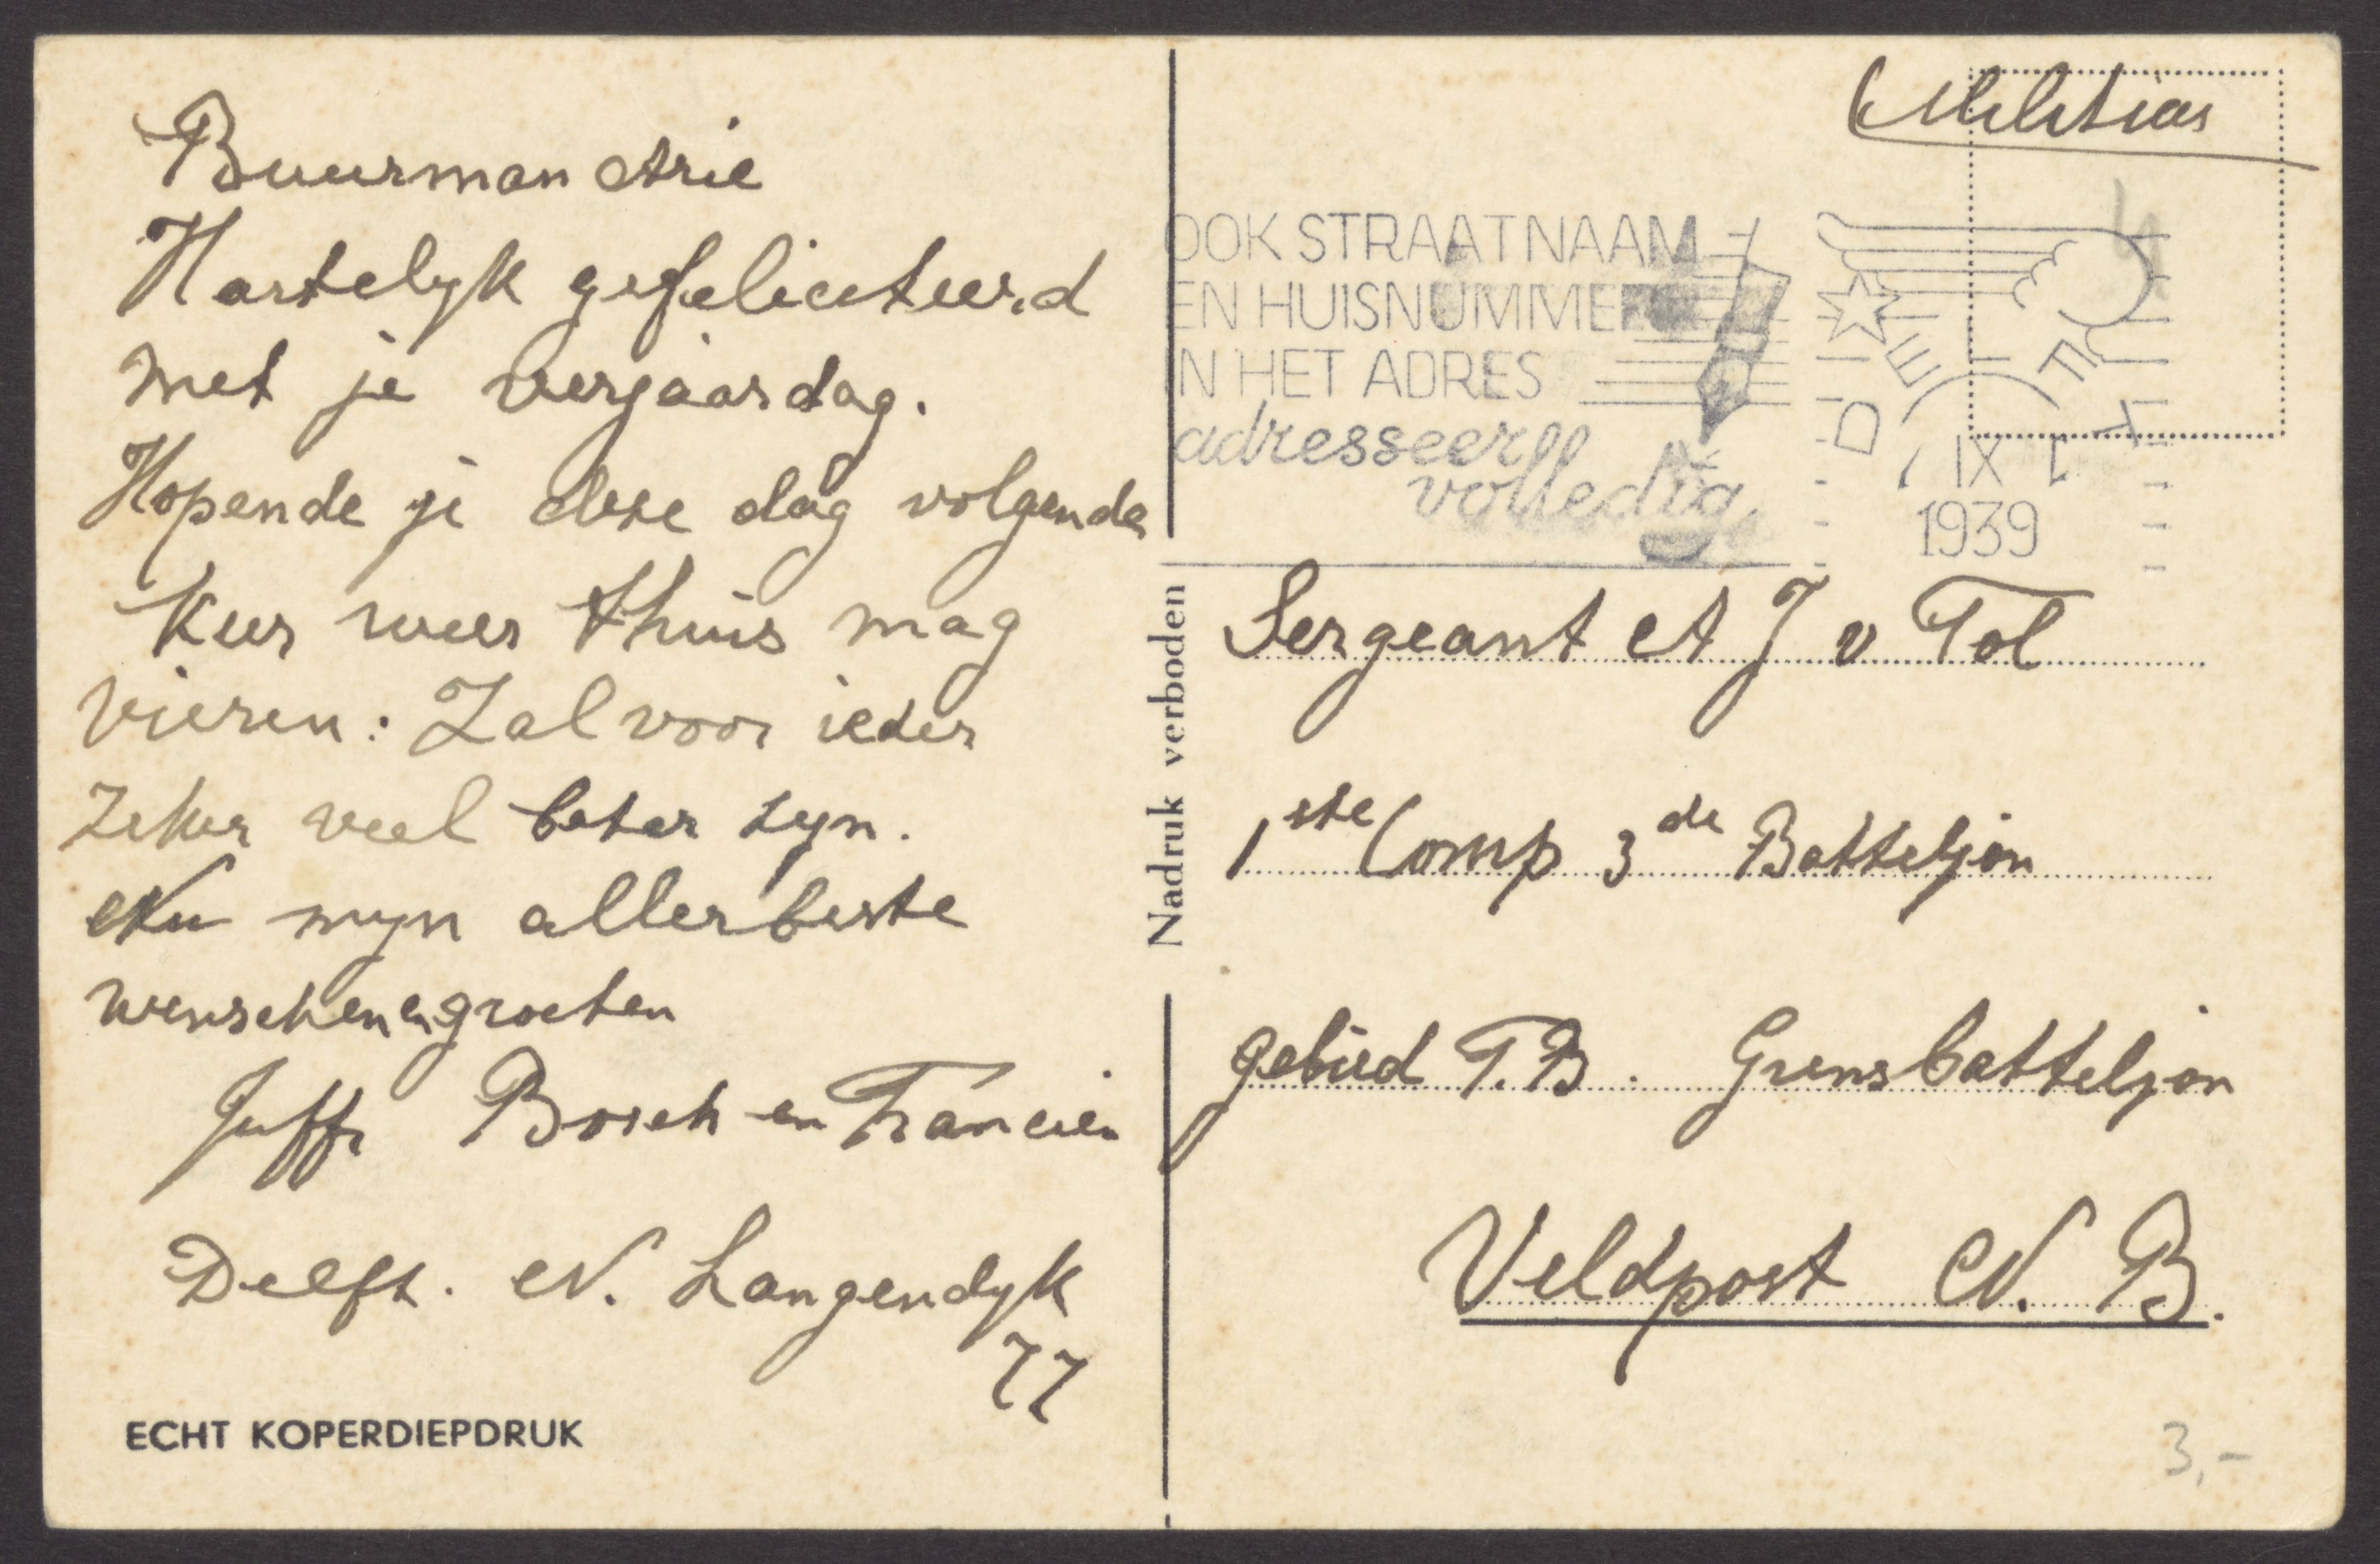 Buurman Arie
Hartelyk gefeliciteerd
met je verjaardag.
Hopende je deze dag volgende
keer weer thuis mag
vieren: Zal voor ieder
zeker veel beter zyn.
Nu myn allerbeste
wenschen en groeten
Juffr Bosch en Francien
Delft. N. Langendyk
77
ECHT KOPERDIEPDRUK
Nadruk verboden
Militair
OOK STRAATNAAM
EN HUISNUMMER
IN HET ADRES
adresseer
volledig
DELFT
IX
1939
Sergeant A J v Tol
1ste Comp 3de Batteljon
gebied T.B. Grensbatteljon
Veldpost N. B.
3,-